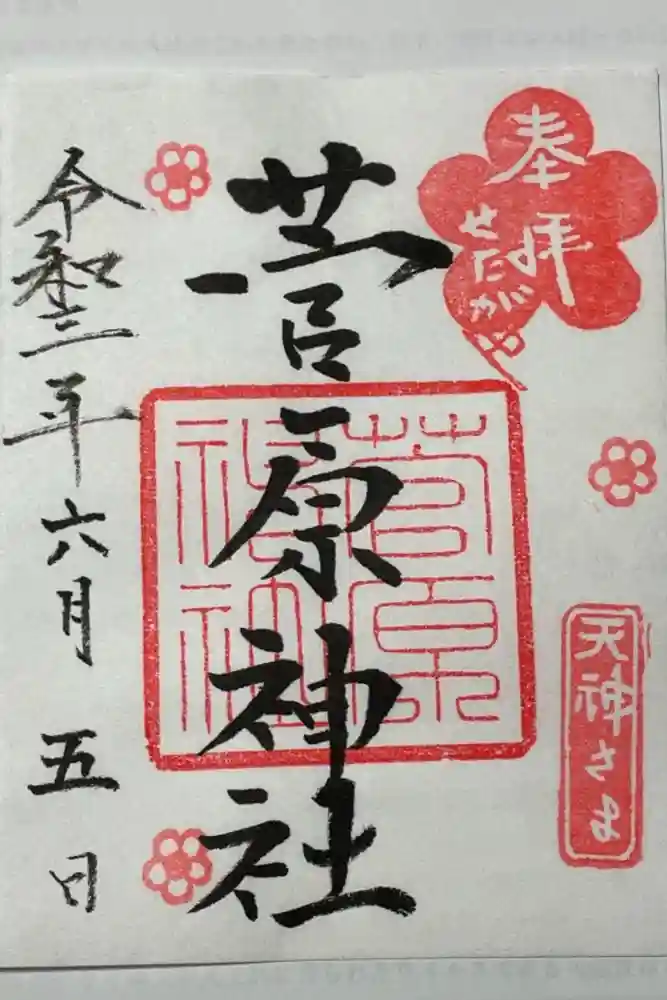 奉拝
せたがや
天神さま
菅原神社
菅原
神社
令和三年六月五日